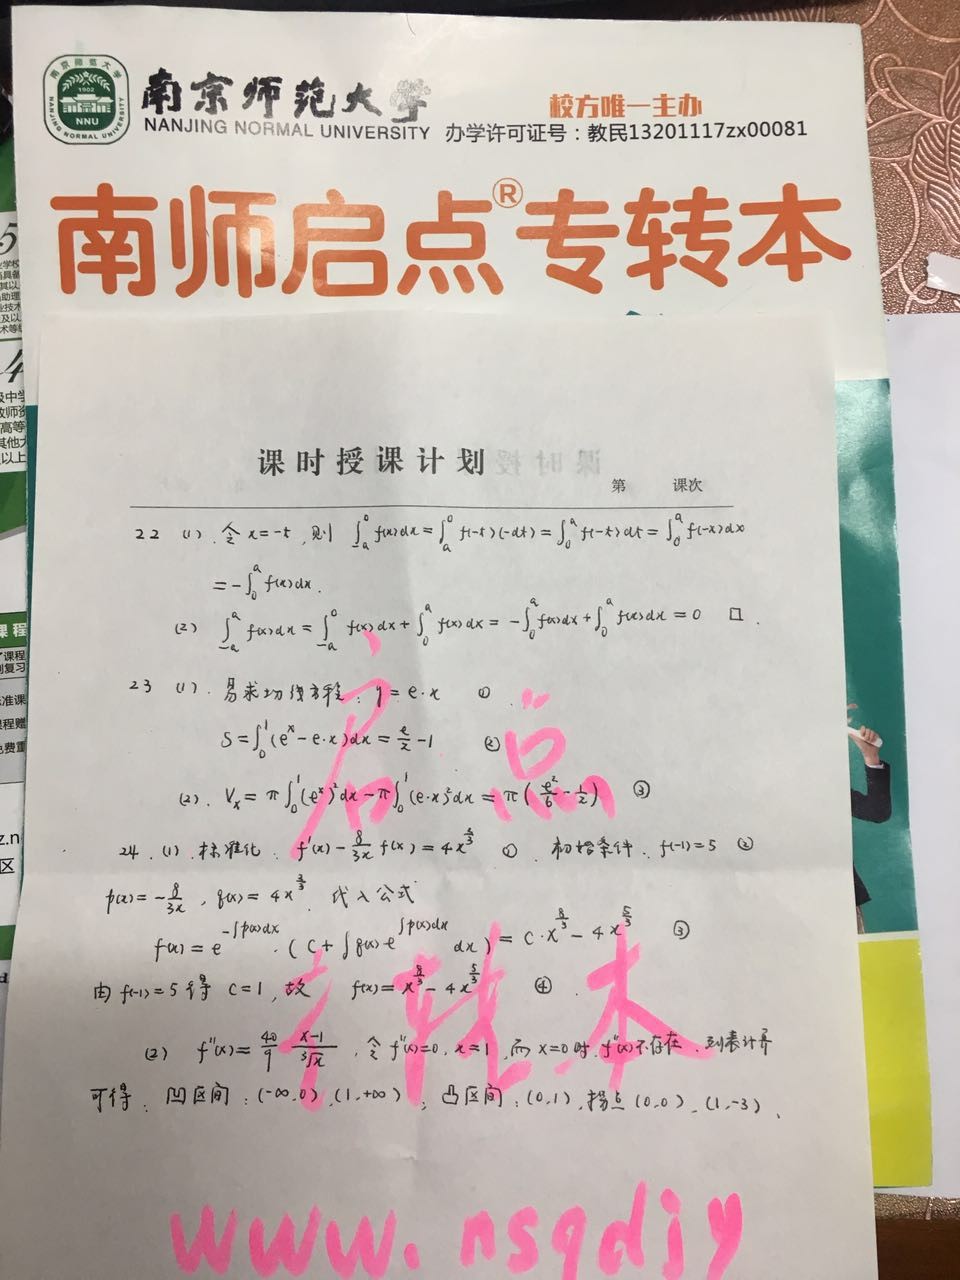 南京师范大学
NANJING NORMAL UNIVERSITY
NNU
1902
校方唯一主办
办学许可证号：教民13201117zx00081
南师启点® 专转本
课时授课计划
第 课次
22 (1). 令 x=-t, 则 ∫_{-a}^{0} f(x)dx = ∫_{a}^{0} f(-t)(-dt) = ∫_{0}^{a} f(-t)dt = ∫_{0}^{a} f(-x)dx
= -∫_{0}^{a} f(x)dx.
(2) ∫_{-a}^{a} f(x)dx = ∫_{-a}^{0} f(x)dx + ∫_{0}^{a} f(x)dx = -∫_{0}^{a} f(x)dx + ∫_{0}^{a} f(x)dx = 0 □.
23 (1). 易求切线方程: y=e·x ①
S=∫_{0}^{1}(e^x-e·x)dx = e/2-1 ②
(2). V_x = π∫_{0}^{1}(e^x)^2dx-π∫_{0}^{1}(e·x)^2dx = π(e^2/6-1/2) ③
24. (1). 标准化: f'(x)-8/(3x) f(x) = 4x^{2/3} ①. 初始条件. f(-1)=5 ②
p(x)=-8/(3x), q(x)=4x^{2/3} 代入公式
f(x)=e^{-∫p(x)dx}·(C+∫q(x)e^{∫p(x)dx}dx) = C·x^{8/3}-4x^{5/3} ③
由 f(-1)=5 得 C=1, 故 f(x)=x^{8/3}-4x^{5/3} ④.
(2) f''(x)=40/9 (x-1)/∛x, 令 f''(x)=0, x=1, 而 x=0 时, f''(x)不存在. 列表计算
可得: 凹区间: (-∞,0), (1,+∞); 凸区间: (0,1), 拐点 (0,0), (1,-3).
启点
专转本
www.nsqdjy